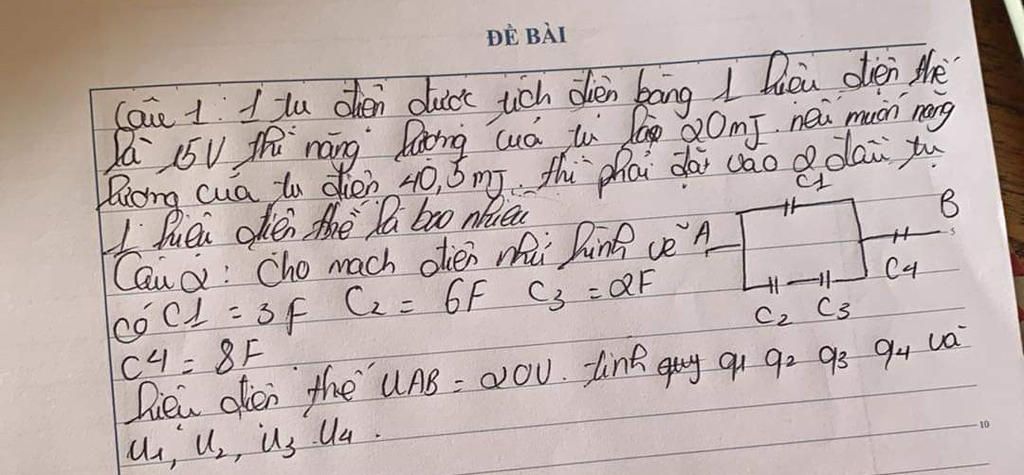 ĐỀ BÀI
Câu 1: 1 tu điện được tích điện bằng 1 hiệu điện thế
là 15V thì năng lượng của tu là 20mJ. nếu muốn năng
lượng của tu điện 40,5mJ. thì phải đặt vào 2 đầu tụ
1 hiệu điện thế là bao nhiêu
Câu 2: Cho mạch điện như hình vẽ A C1 B
C2 C3 C4
có C1 = 3F C2 = 6F C3 = 2F
C4 = 8F
hiệu điện thế UAB = 20V. tính q1 q2 q3 q4 và
U1, U2, U3 U4.
10